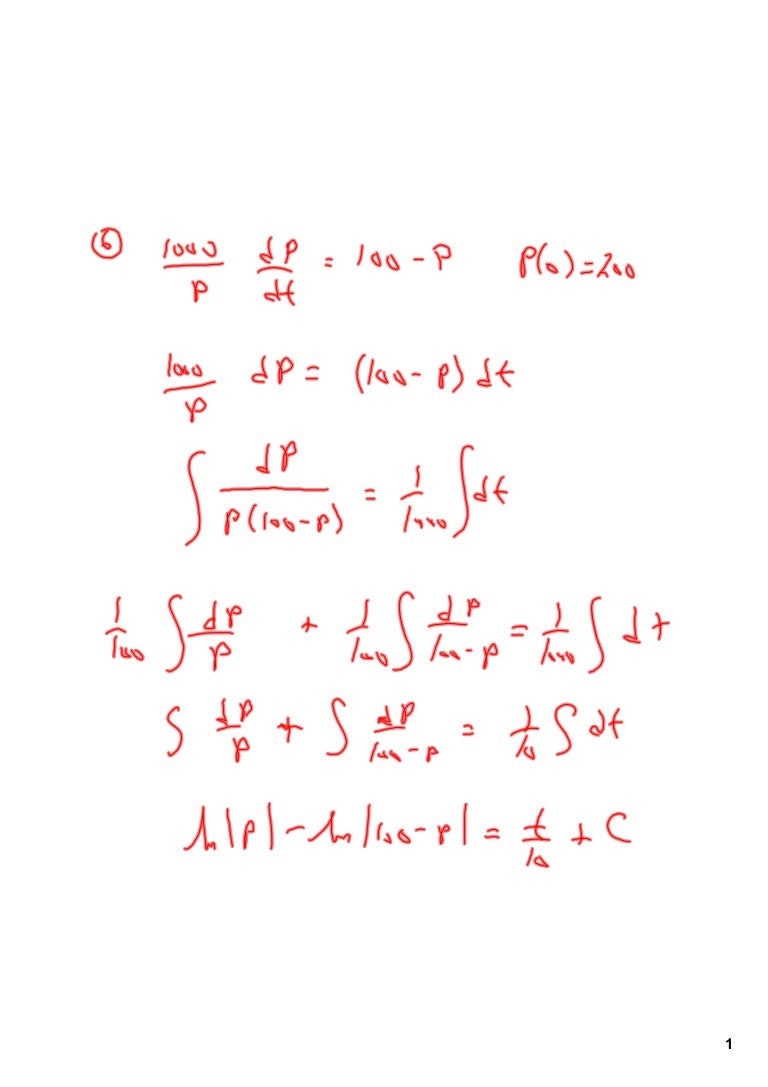 ⑥ 1000/P dP/dt = 100 - P P(0) = 200
1000/P dP = (100 - P) dt
∫ dP/(P(100 - P)) = 1/1000 ∫ dt
1/100 ∫ dP/P + 1/100 ∫ dP/(100 - P) = 1/1000 ∫ dt
∫ dP/P + ∫ dP/(100 - P) = 1/10 ∫ dt
ln|P| - ln|100 - P| = t/10 + C
1